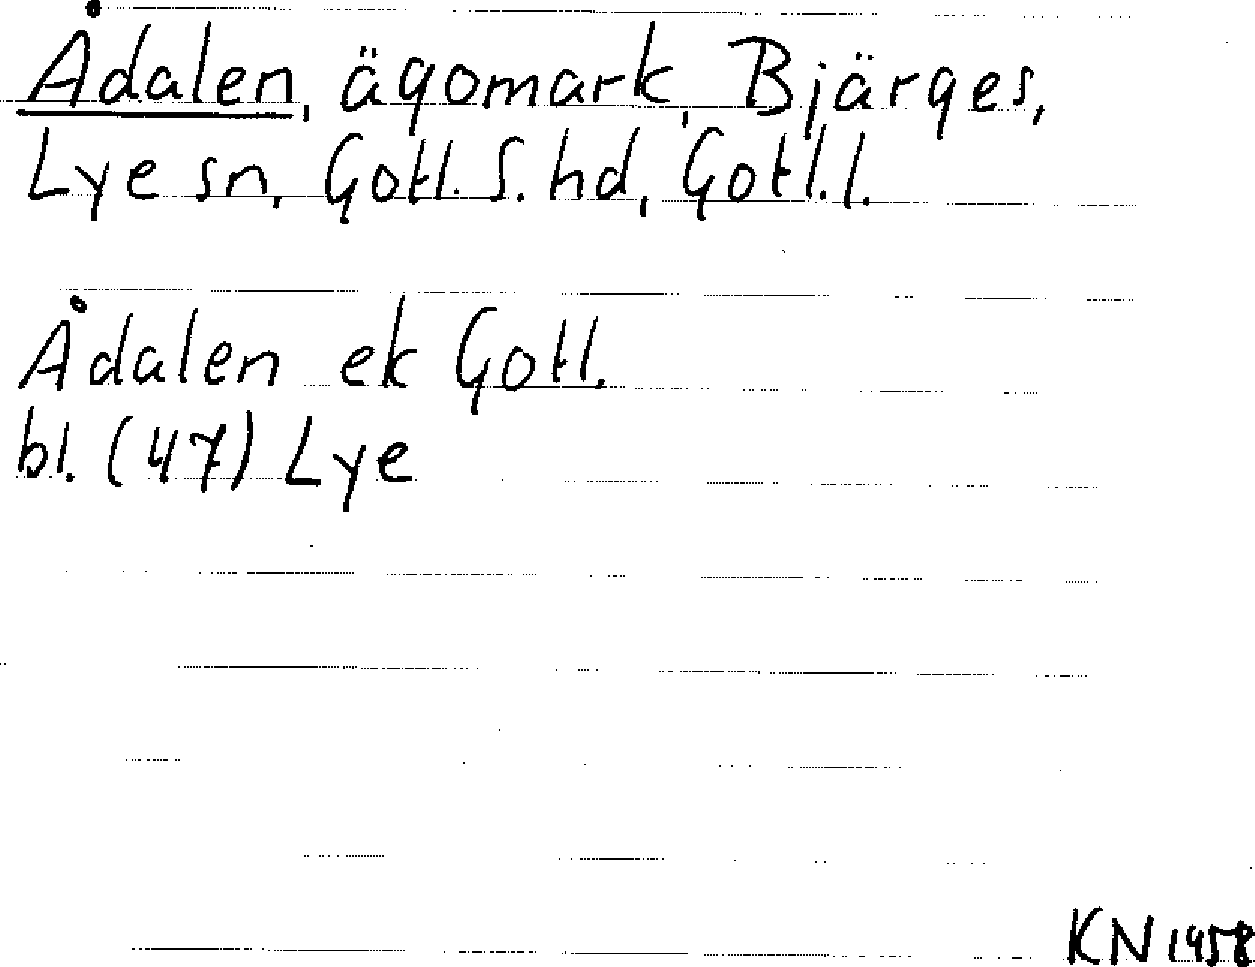 Ådalen, ägomark, Bjärges,
Lye sn, Gotl. S. hd, Gotl. l.
Ådalen ek Gotl.
bl. (47) Lye
KN 1958